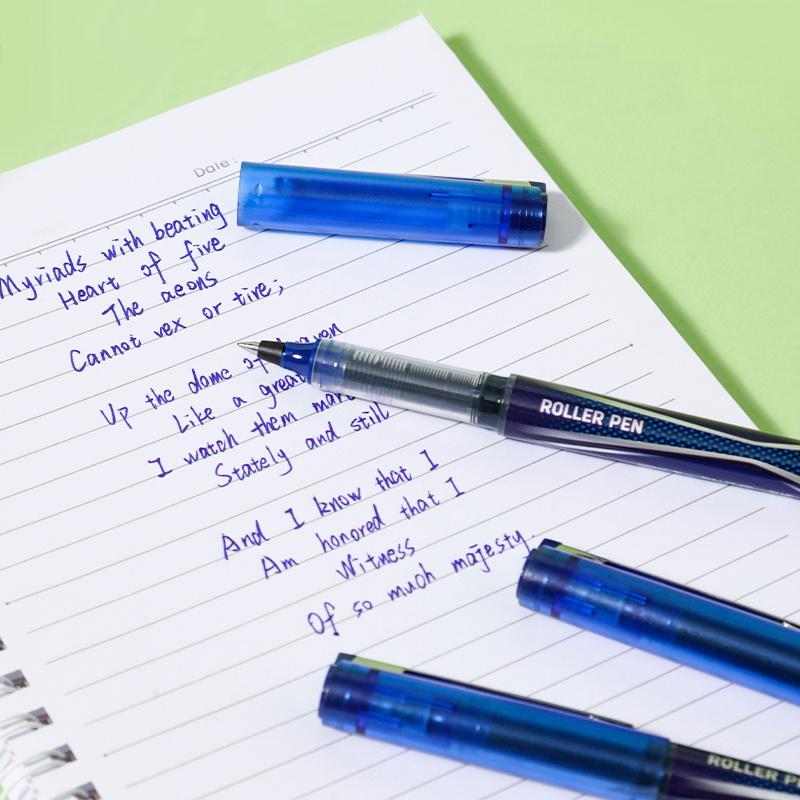 Date:
Myriads with beating
Heart of five
The aeons
Cannot vex or tire;
Up the dome of
Like a great
I watch them
Stately and still
And I know that I
Am honored that I
Witness
Of so much majesty.
ROLLER PEN
ROLLER